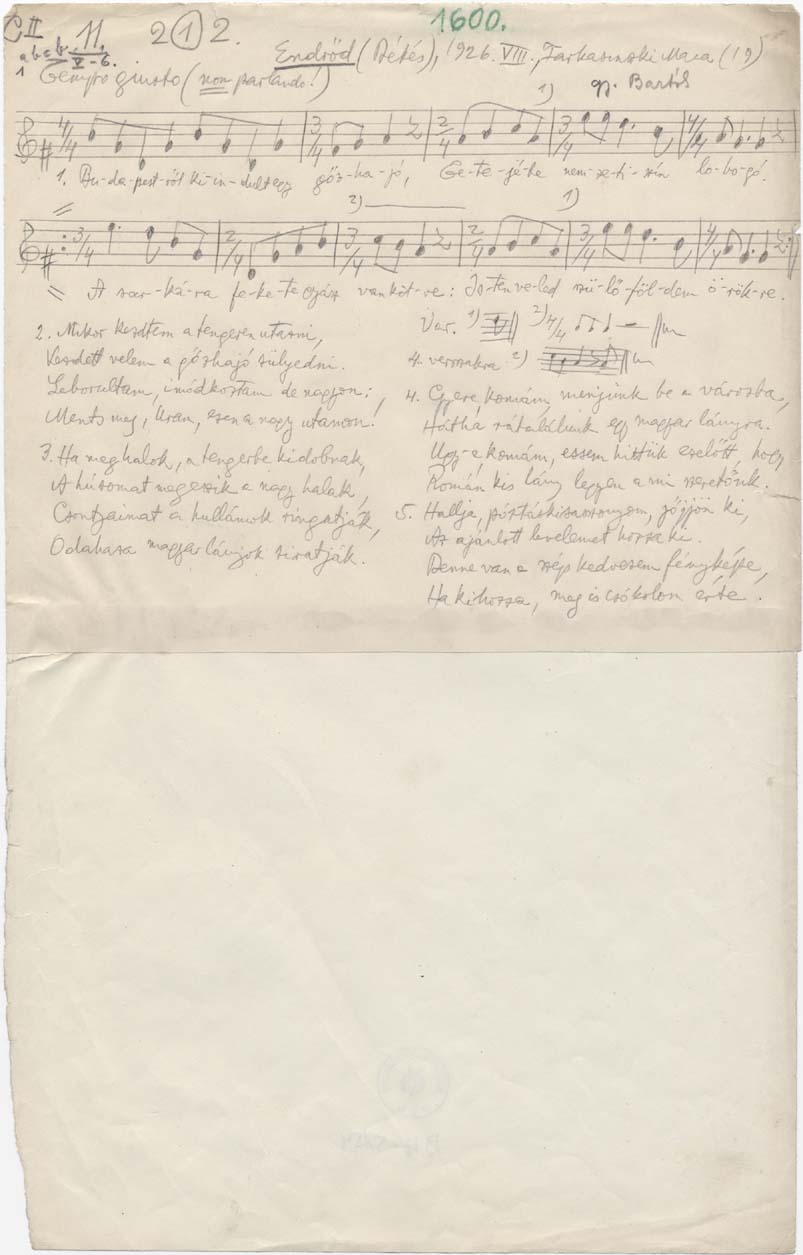 C II 11 2 1 2. 1600.
Endrőd (Békés), 1926. VIII., Farkasinszki Maca (19)
V-6.
1 Tempo giusto (non parlando!) gy. Bartók
1)
4/4 3/4 2/4 3/4 4/4
1. Bu-da-pest-ről ki-in-dult egy gőz-ha-jó, Te-te-jébe nem-ze-ti-szín lo-bo-gó.
2) 1)
3/4 2/4 3/4 2/4 3/4 4/4
A sar-ká-ra fe-ke-te gyász van köt-ve: Is-ten veled szü-lő-föl-dem ö-rök-re.
Var. 1) 2) 4/4
4. versszakra 2)
2. Mikor kezdtem a tengeren utazni,
Kezdett velem a gőzhajó sülyedni.
Leborultam, imádkoztam de nagyon:
Ments meg, Uram, ezen a nagy utamon!
3. Ha meghalok, a tengerbe kidobnak,
A húsomat megeszik a nagy halak,
Csontjaimat a hullámok ringatják,
Odahaza magyar lányok siratják.
4. Gyere, komám, menjünk be a városba,
Hátha rátalálunk egy magyar lányra.
Ugy-e komám, essem hittük ezelőtt, hogy
Román kis lány legyen a mi szeretőnk.
5. Hallja, póstáskisasszonyom, jőjjön ki,
Az ajánlott levelemet hozza ki.
Benne van a szép kedvesem fényképe,
Ha kihozza, meg is csókolom érte.